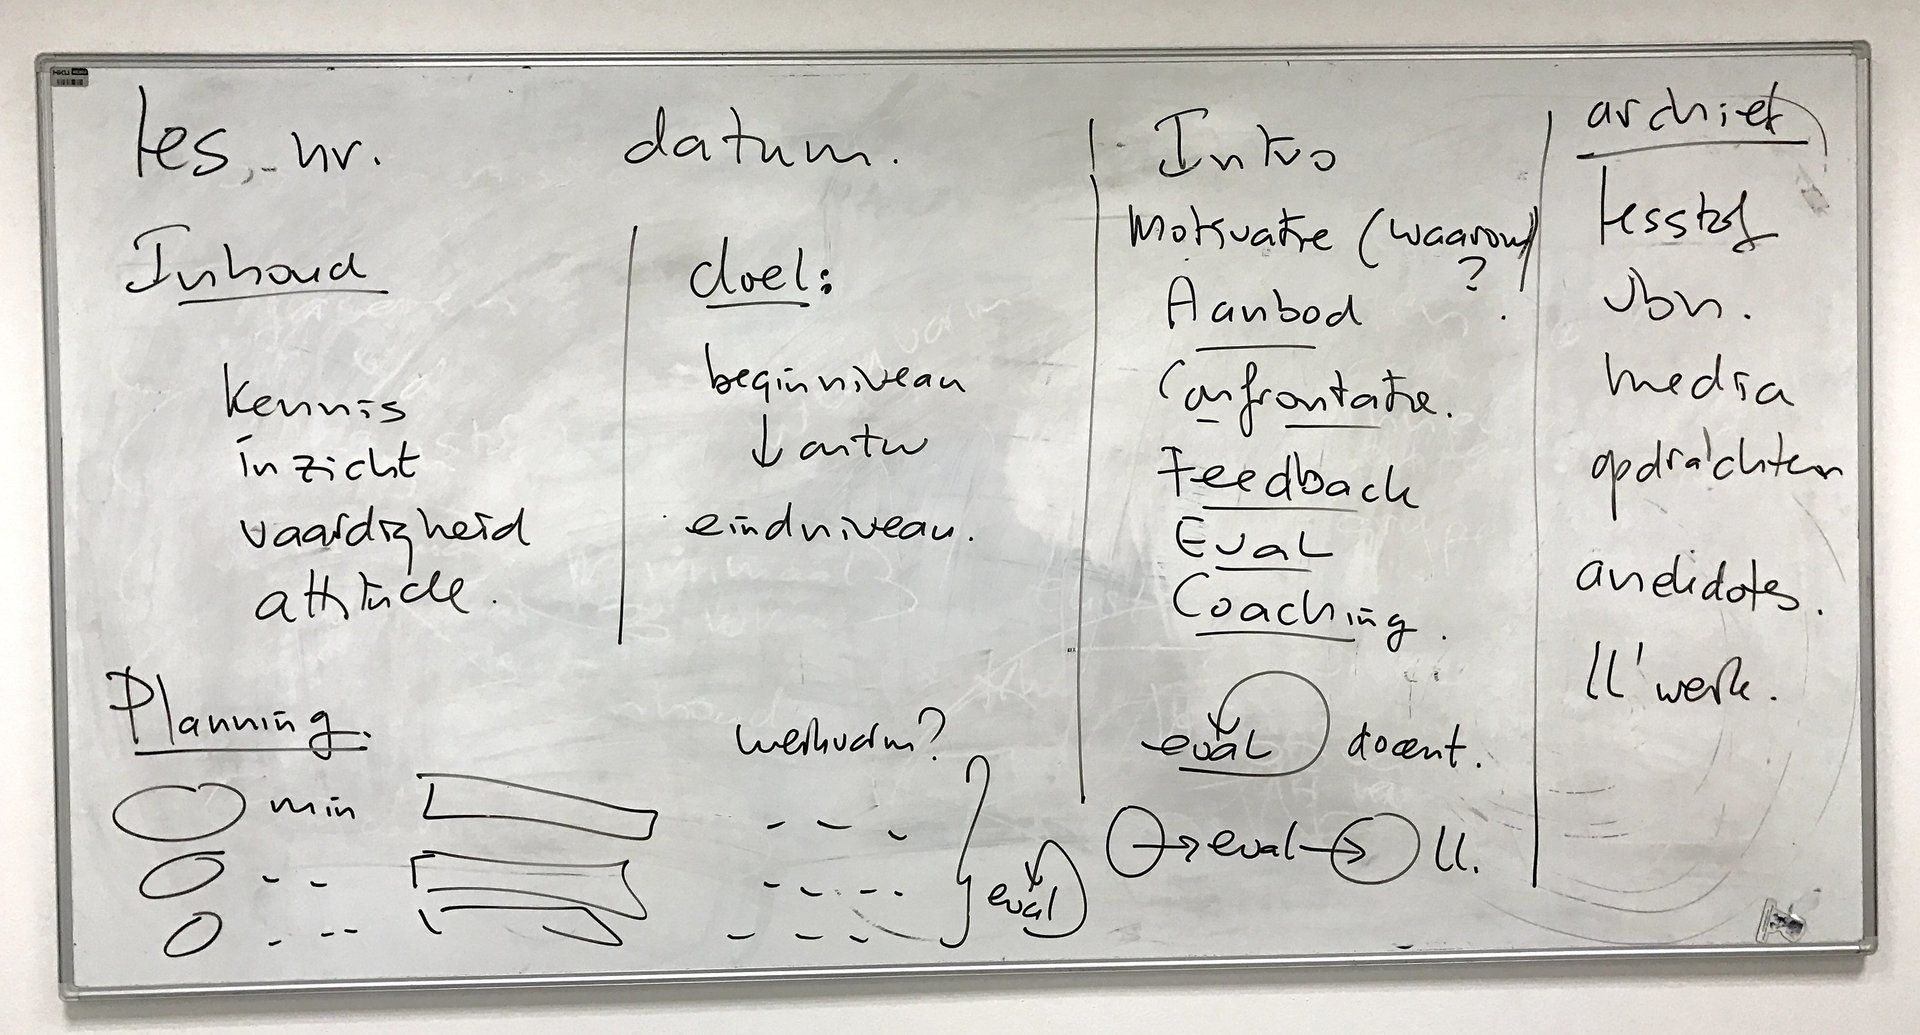 les nr.
datum.
Inhoud
kennis
inzicht
vaardigheid
attitude.
doel:
beginniveau
↓ ontw
eindniveau.
Planning.
werkvorm?
min
eval
Intro
Motivatie (waarom)
?
Aanbod
Confrontatie.
Feedback
Eval
Coaching.
eval docent.
→ eval → ll.
archief
lesstof
vbn.
media
opdrachten
anekdotes.
ll' werk.